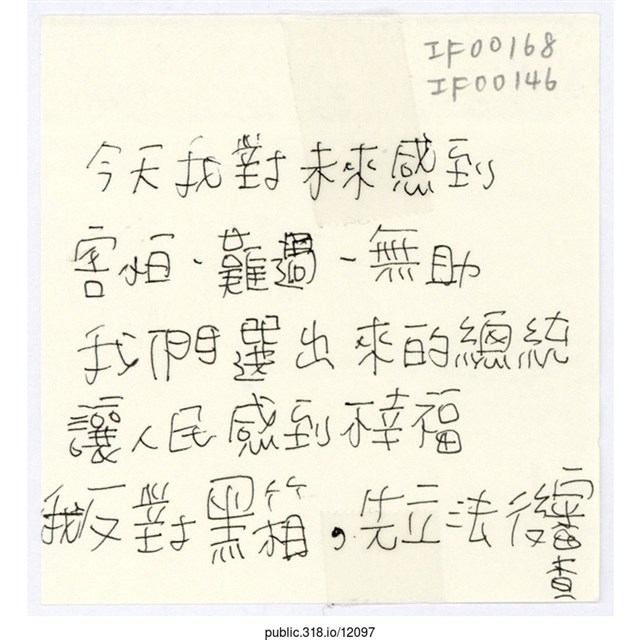 IF00168
IF00146
今天我對未來感到
害怕、難過、無助
我們選出來的總統
讓人民感到不幸福
我反對黑箱,先立法後審查
public.318.io/12097